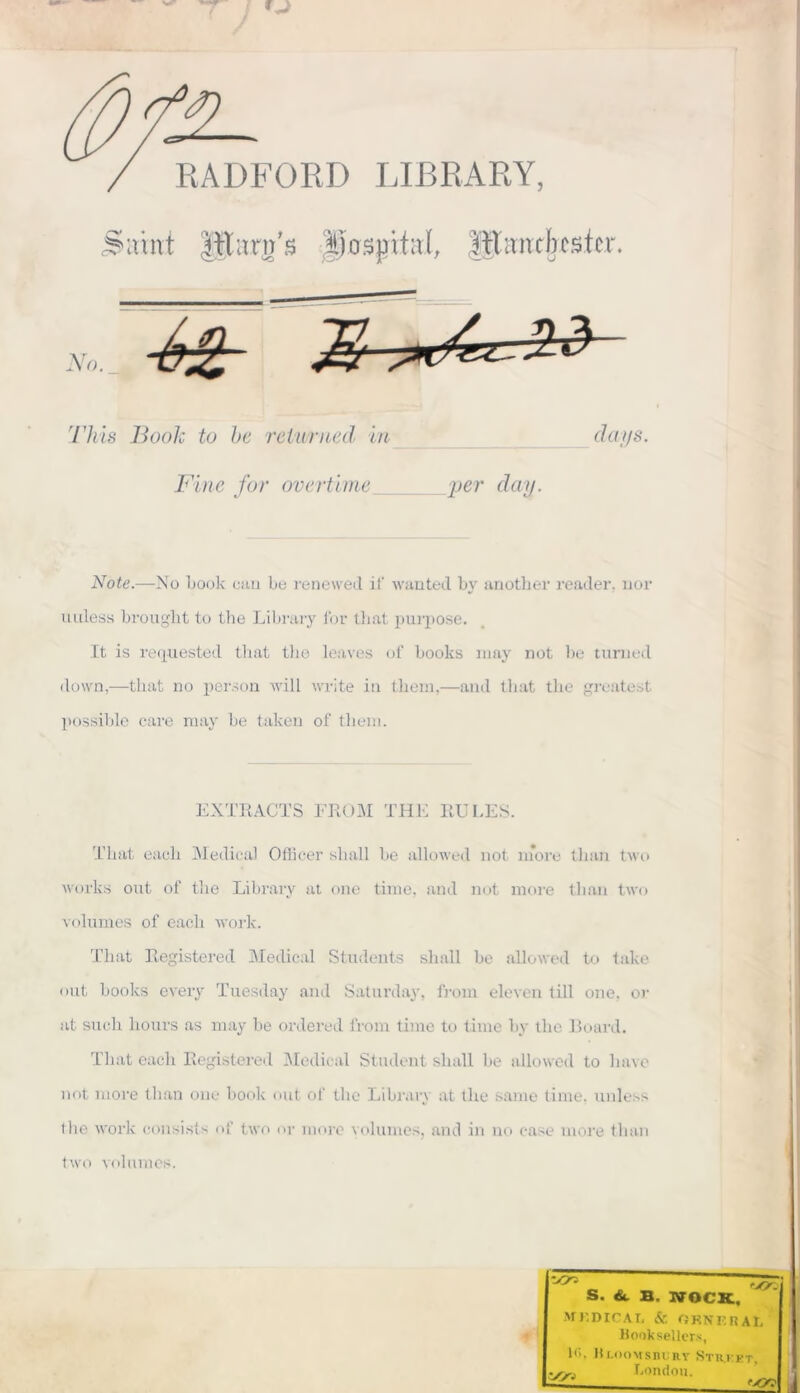 RADFORD LIBRARY,
Saint Mary's Hospital, Manchester.
No. 62
This Book to be returned in days.
Fine for overtime per day.
Note.—No book can be renewed if wanted by another reader, nor
unless brought to the Library for that purpose.
It is requested that the leaves of books may not be turned
down,—that no person will write in them,—and that the greatest
possible care may be taken of them.
EXTRACTS FROM THE RULES.
That each Medical Officer shall be allowed not more than two
works out of the Library at one time, and not more than two
volumes of each work.
That Registered Medical Students shall be allowed to take
out books every Tuesday and Saturday, from eleven till one, or
at such hours as may be ordered from time to time by the Board.
That each Registered Medical Student shall be allowed to have
not more than one book out of the Library at the same time, unless
the work consists of two or more volumes, and in no case more than
two volumes.
S. & B. NOCK,
MEDICAL & GENERAL
Booksellers,
16, BLOOMSBURY STREET,
London.